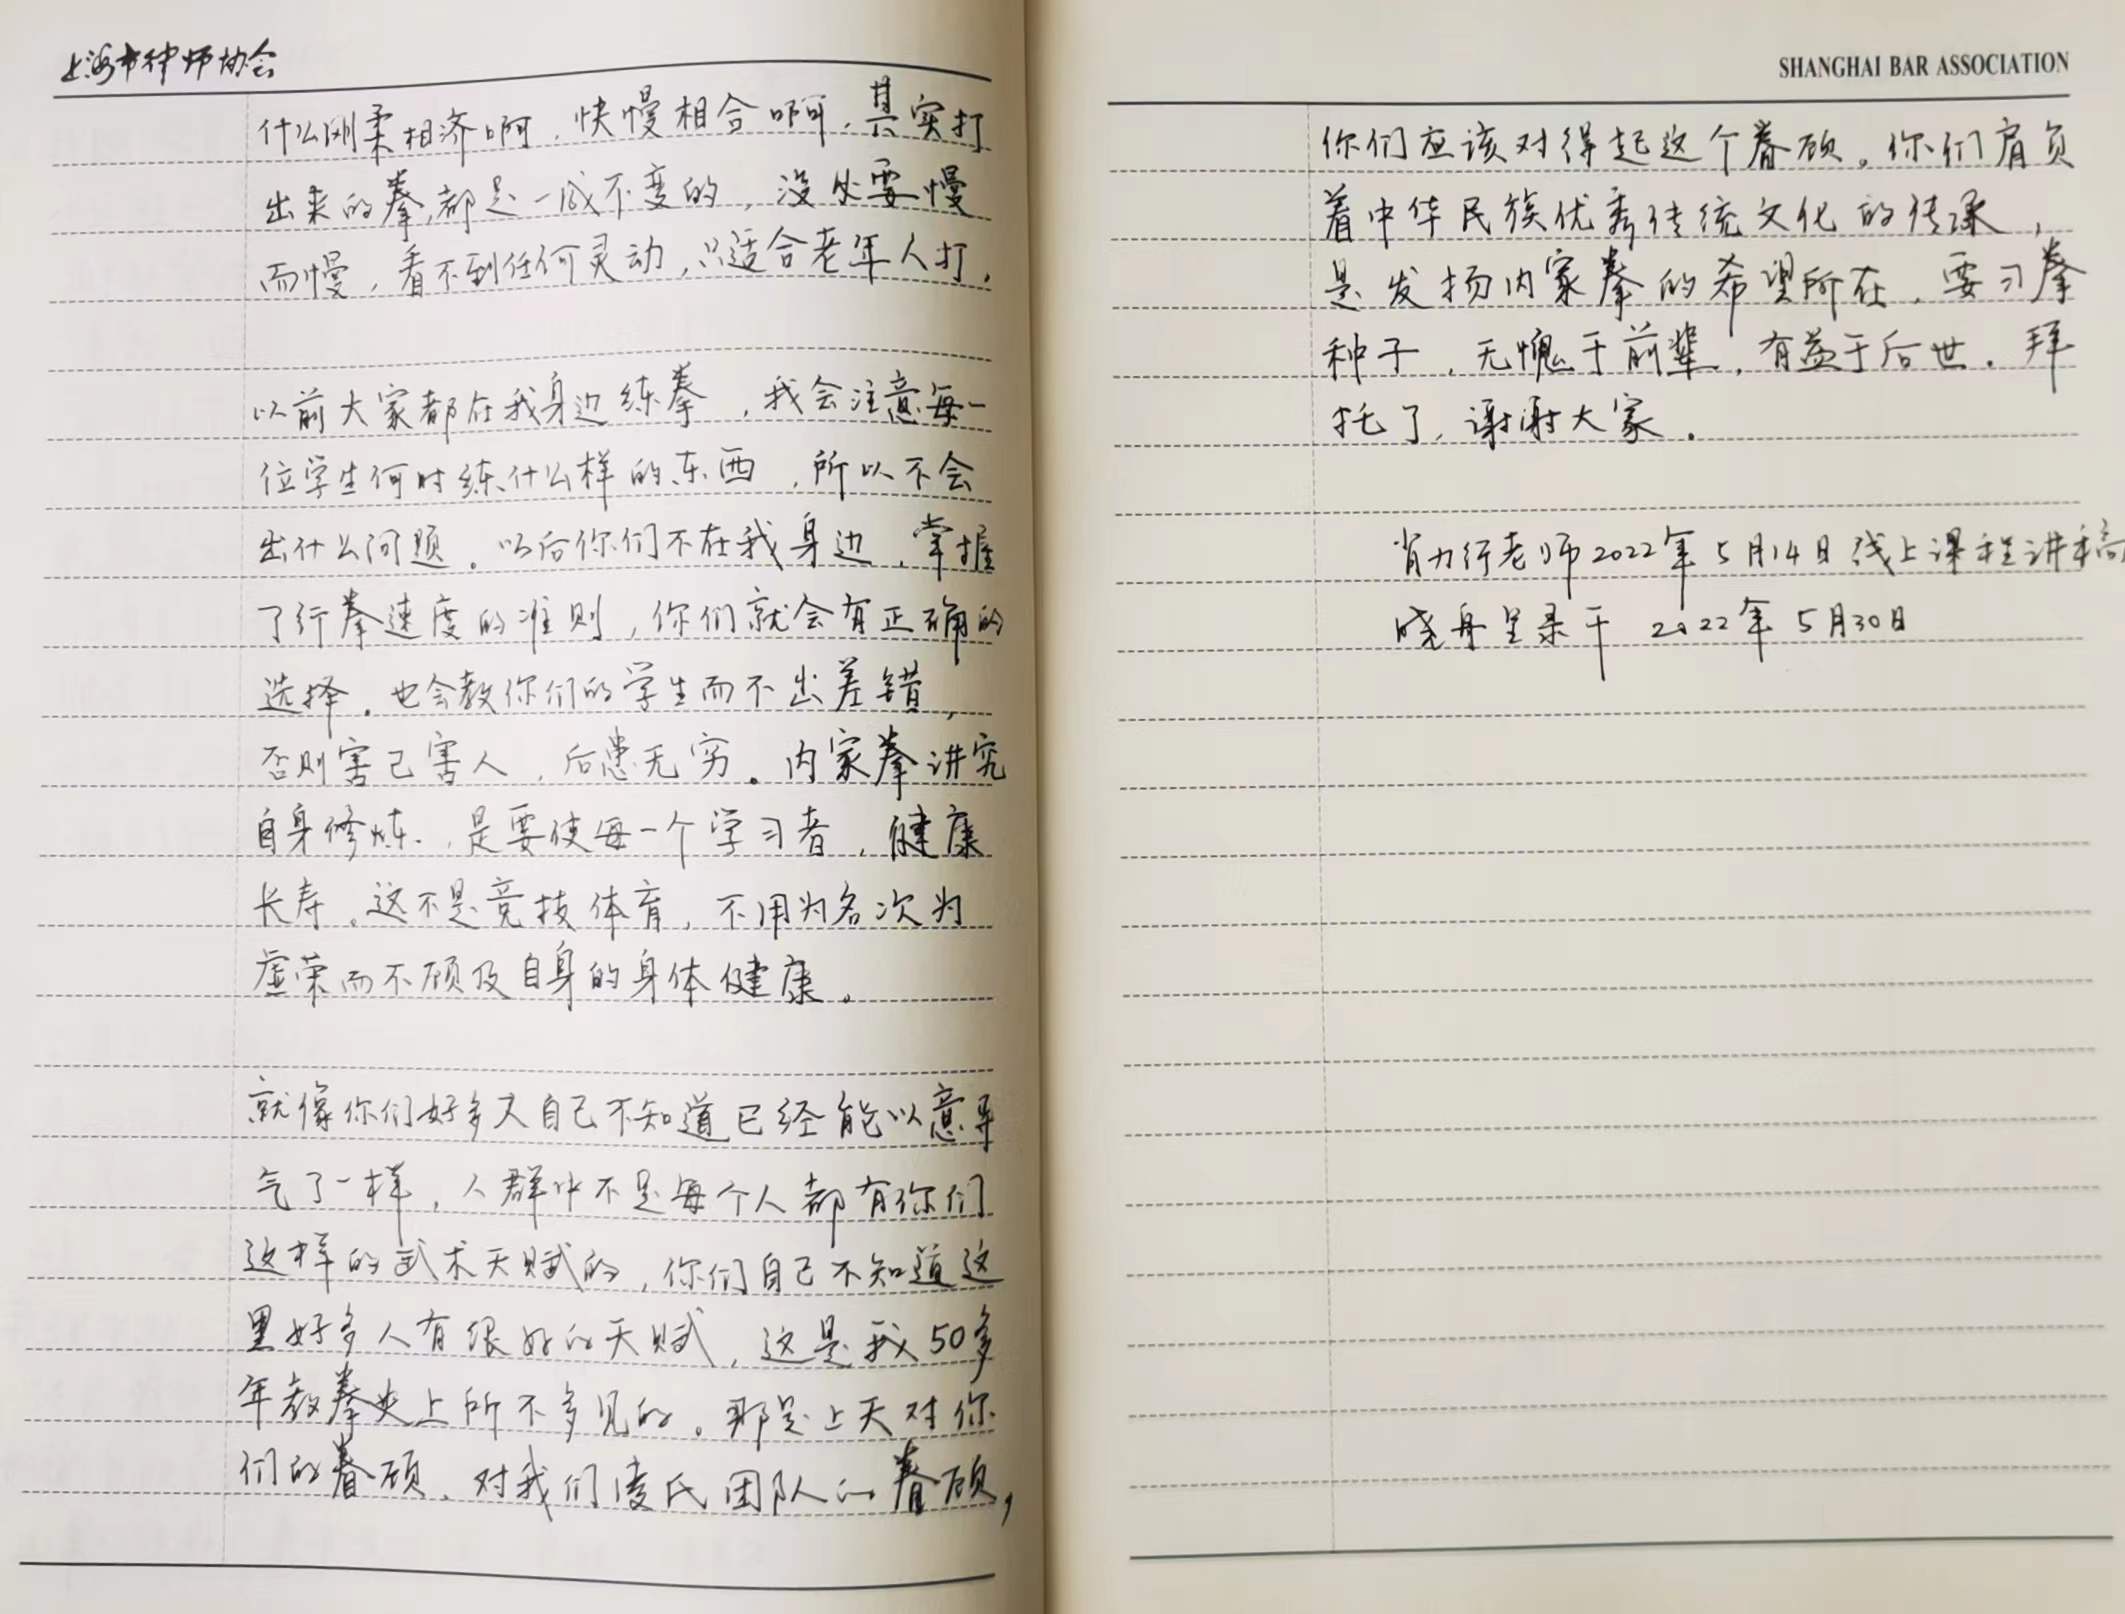 上海市律师协会
什么刚柔相济啊，快慢相合啊，其实打
出来的拳，都是一成不变的，没处要慢
而慢，看不到任何灵动，只适合老年人打，
以前大家都在我身边练拳，我会注意每一
位学生何时练什么样的东西，所以不会
出什么问题。以后你们不在我身边，掌握
了行拳速度的准则，你们就会有正确的
选择。也会教你们的学生而不出差错，
否则害己害人，后患无穷。内家拳讲究
自身修炼，是要使每一个学习者，健康
长寿。这不是竞技体育，不用为名次为
虚荣而不顾及自身的身体健康。
就像你们好多人自己不知道已经能以意导
气了一样，人群中不是每个人都有你们
这样的武术天赋的，你们自己不知道这
里好多人有很好的天赋，这是我50多
年教拳史上所不多见的。那是上天对你
们的眷顾、对我们凌氏团队的眷顾，
SHANGHAI BAR ASSOCIATION
你们应该对得起这个眷顾。你们肩负
着中华民族优秀传统文化的传承，
是发扬内家拳的希望所在，要习拳
种子，无愧于前辈，有益于后世。拜
托了，谢谢大家.
肖力行老师2022年5月14日线上课程讲稿
晓舟呈录于 2022年5月30日